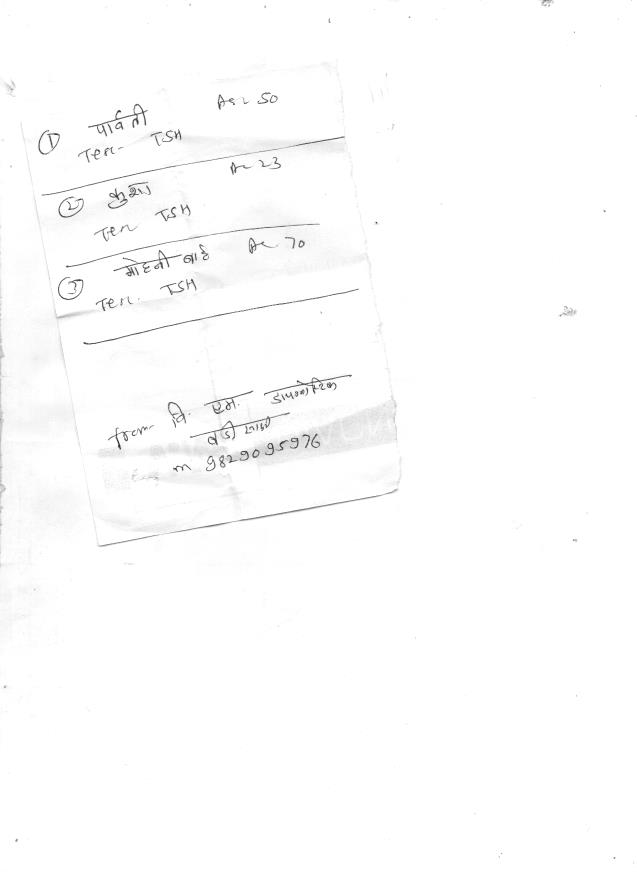 ① पार्वती Age 50
Ten- TSH
② कुशा Ae 23
Ten TSH
③ मोहनी बाई Ae 70
Ten. TSH
from- वि. एम. डायग्नोस्टिक
बडी
m 9829095976